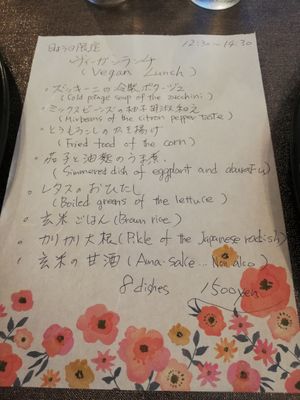 12:30〜14:30
ヴィーガンランチ
(Vegan Lunch)
ズッキーニの冷製ポタージュ
(Cold potage soup of the zucchini)
ミックスビーンズの柚子胡椒和え
(Mixbeans of the citron pepper taste)
とうもろこしのかき揚げ
(Fried food of the corn)
茄子と油麩のうま煮
(Simmered dish of eggplant and
レタスのおひたし
(Boiled greens of the lettuce)
玄米ごはん (Brown rice)
カリカリ大根 (Pickle of the Japanese radish)
玄米の甘酒 (Ama-sake... Non alco)
8dishes 1500yen